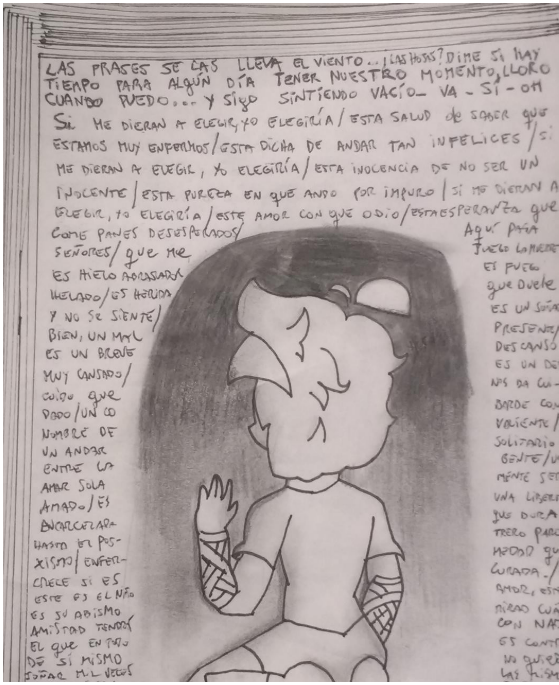 LAS FRASES SE LAS LLEVA EL VIENTO... ¿LAS HOJAS? DIME SI HAY
TIEMPO PARA ALGÚN DÍA TENER NUESTRO MOMENTO, LLORO
CUANDO PUEDO... Y SIGO SINTIENDO VACÍO_ VA - SÍ - OH
Si ME DIERAN A ELEGIR, YO ELEGIRÍA / ESTA SALUD de SABER QUE
ESTAMOS MUY ENFERMOS / ESTA DICHA DE ANDAR TAN INFELICES / SI
ME DIERAN A ELEGIR, YO ELEGIRÍA / ESTA INOCENCIA DE NO SER UN
INOCENTE / ESTA PUREZA EN QUE ANDO POR IMPURO / SI ME DIERAN A
ELEGIR, YO ELEGIRÍA / ESTE AMOR CON QUE ODIO / ESTA ESPERANZA que
COME PANES DESESPERADOS / AQUÍ PASA
SEÑORES / que ME JUEGO LA MUERTE
ES HIELO ABRASADOR ES FUEGO
HELADO / ES HERIDA que DUELE
Y NO SE SIENTE / ES UN SOÑA
BIEN, UN MAL PRESENTE /
ES UN BREVE DESCANSO
MUY CANSADO / ES UN DE
CUIDO que NOS DA CUI-
DADO / UN CO BARDE CON
NOMBRE DE VALIENTE /
UN ANDAR SOLITARIO
ENTRE LA GENTE / U
AMAR SOLA MENTE SER
AMADO / ES UNA LIBER
ENCARCELADA QUE DURA
HASTA EL POS- TRERO PARO
XISMO / ENFER- MEDAD QU
CRECE SI ES CURADA. /
ESTE ES EL NIÑO AMOR, ESTE
ES SU ABISMO MIRAD CUÁ
AMISTAD TENDRÁ CON NAD
EL que EN TODO ES CONTR
DE SÍ MISMO NO QUIERO
SOÑAR MIL VECES LAS MISM